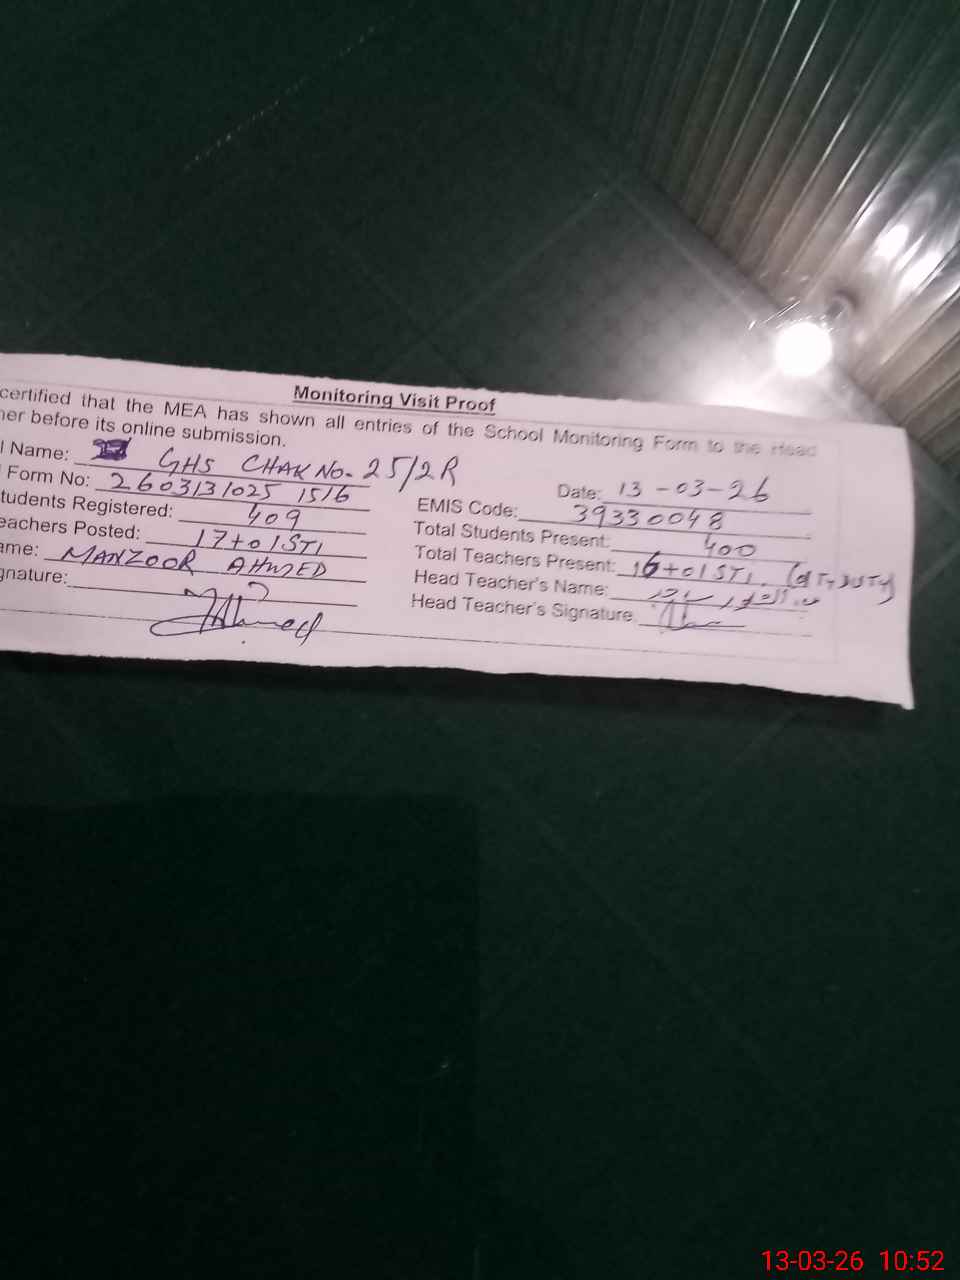 Monitoring Visit Proof
certified that the MEA has shown all entries of the School Monitoring Form to the Head
her before its online submission.
l Name: GHS CHAK No. 25/2R
Date: 13-03-26
Form No: 2603131025 1516
EMIS Code: 39330048
tudents Registered: 409
Total Students Present: 400
eachers Posted: 17+01STI
Total Teachers Present: 16+01STI.
ame: MANZOOR AHMED
Head Teacher's Name:
gnature:
Head Teacher's Signature
13-03-26 10:52